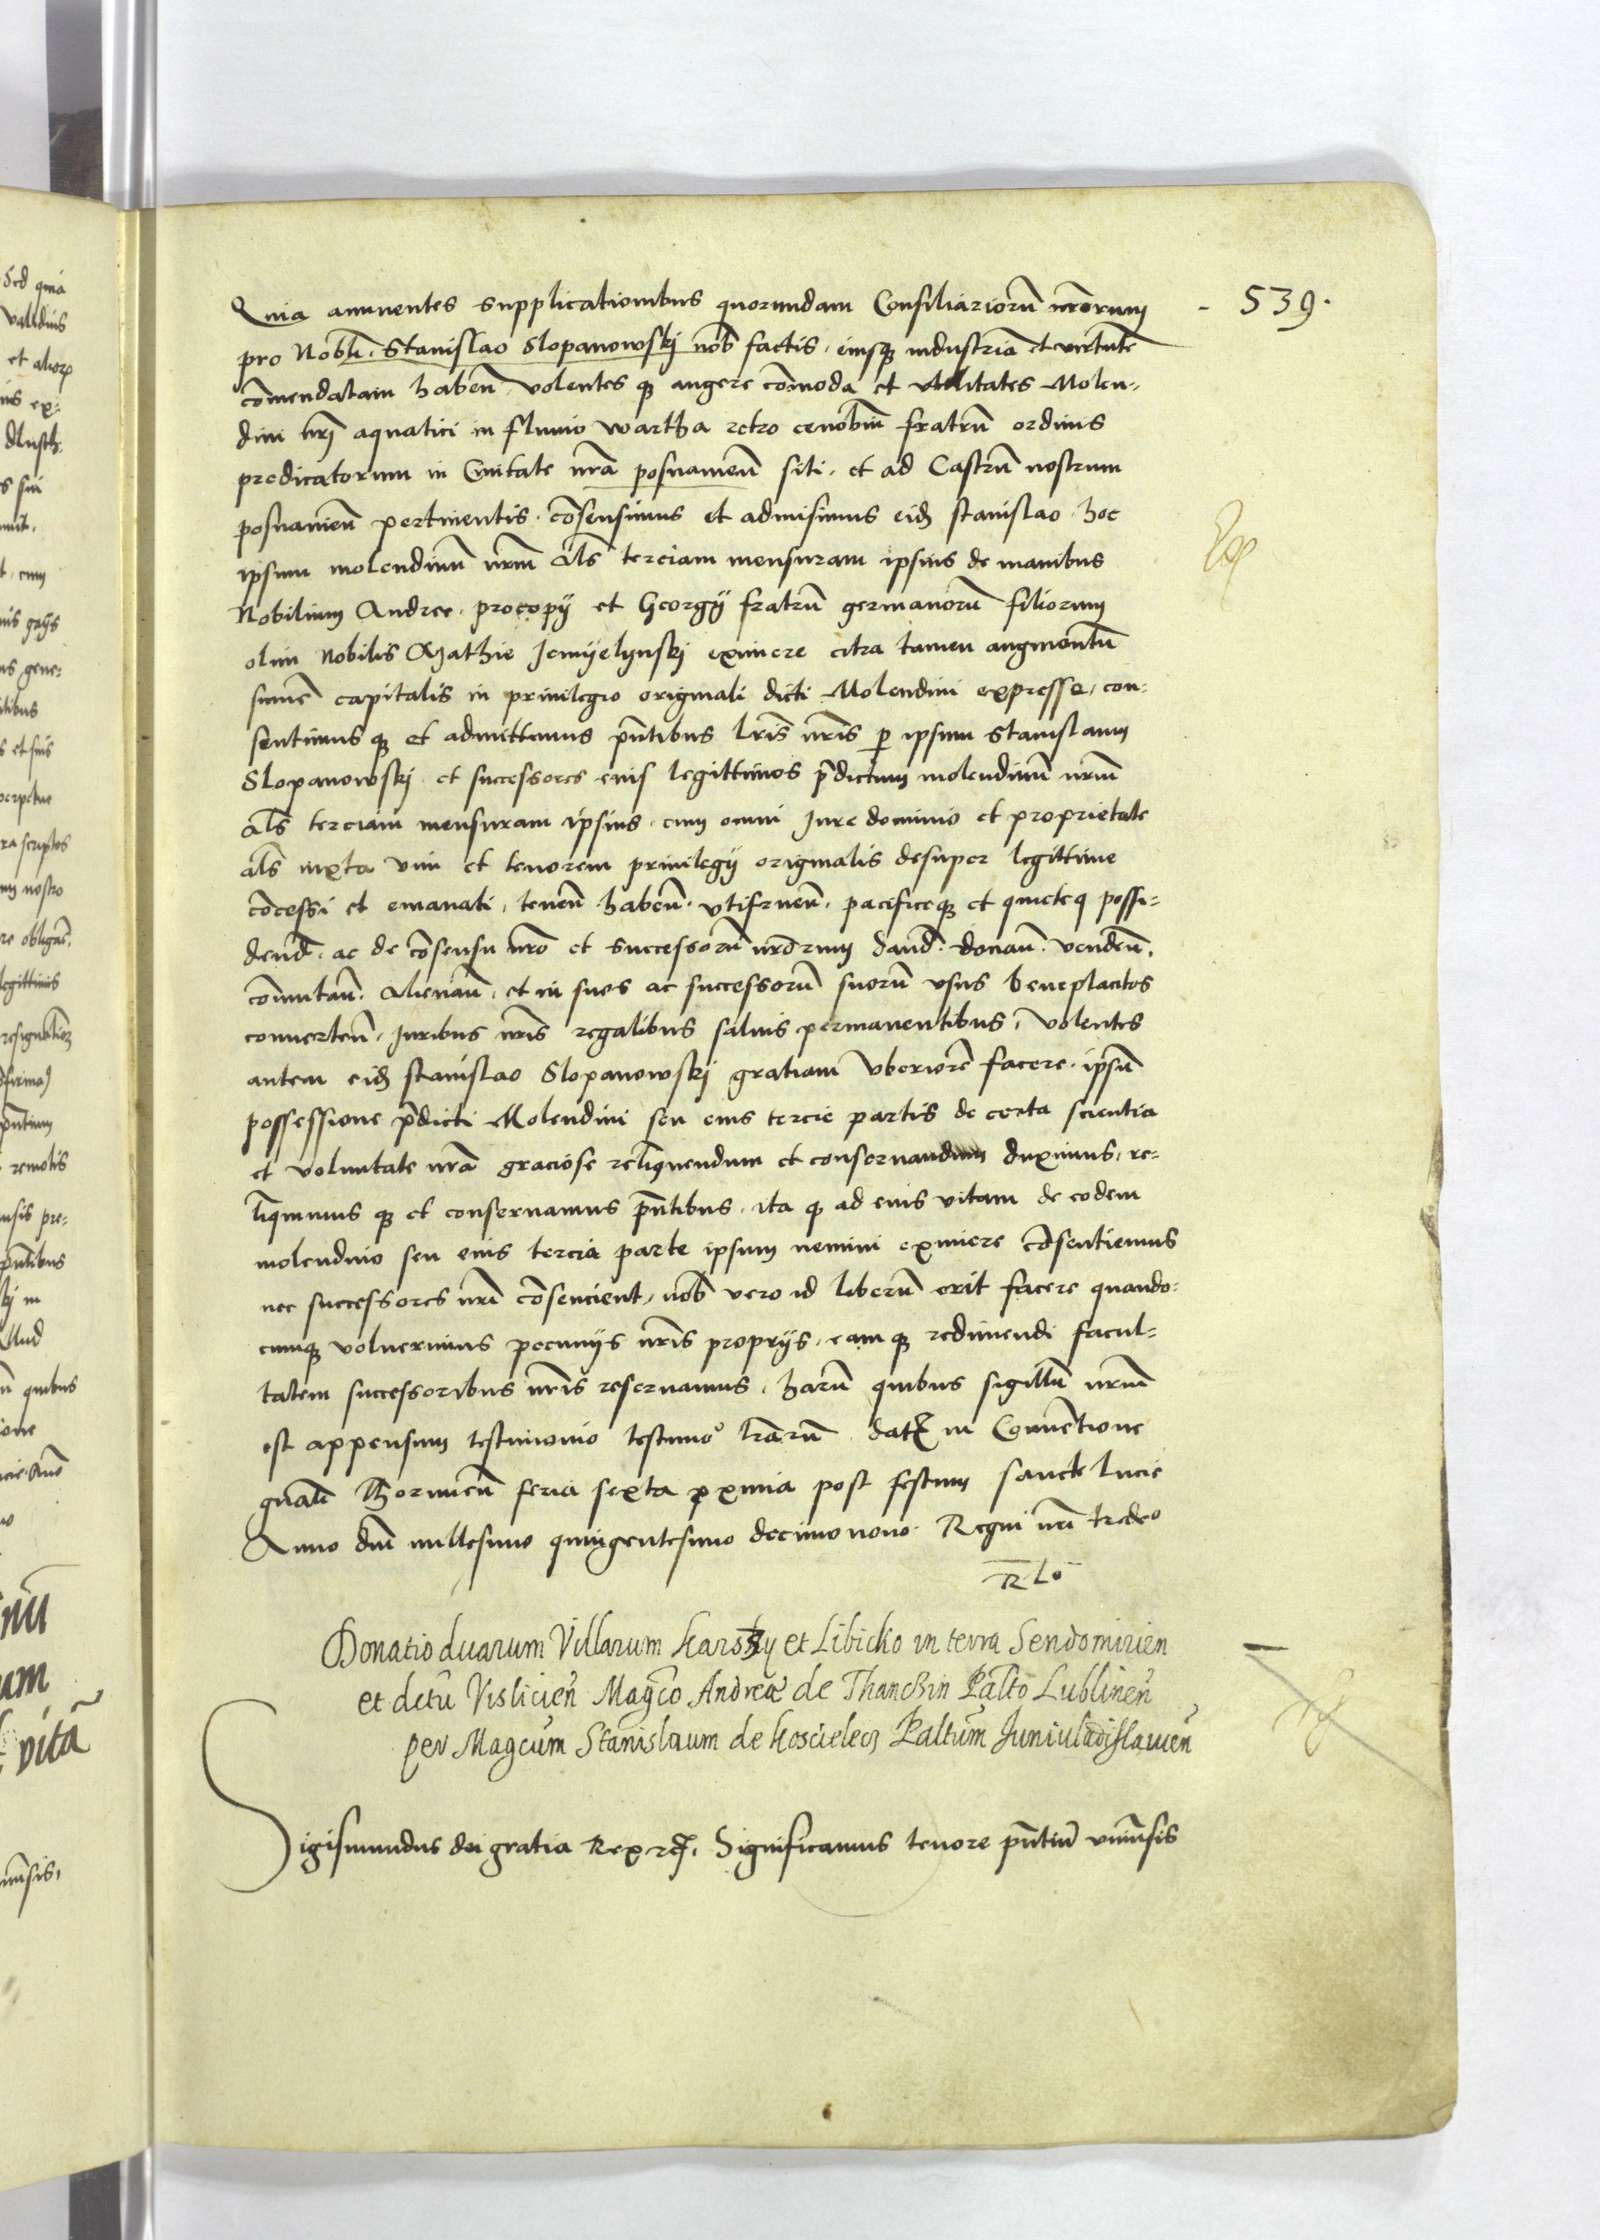 539.
Quia annuentes supplicationibus quorundam Consiliariorū nrōrum
pro Nobili Stanislao Slopanowskj nob̄ factis, eiusq̨ industriā et virtutē
cōmendatam habeñ volentes q̨ augere cōmoda et vtilitates Molen-
dini nrī aquatici in fluuio wartha retro cenobiū fratrū ordinis
predicatorum in Ciuitate nrā posnanieñ siti, et ad Castrū nostrum
posnanieñ pertinentis, cōsensimus et admisimus eidē stanislao hoc
ipsum molendinū nrm̄ als̄ terciam mensuram ipsius de manibus
Nobilium Andree, procopÿ et Georgÿ fratrū germanorū filiorum
olim Nobilis Mathie Jemÿelÿnskj eximere citra tamen augmentū
summe capitalis in priuilegio originali dicti Molendini expresse, con-
sentimus q̨ et admittimus pn̄tibus lrīs nrīs p̱ ipsum stanislaum
Slopanowskj et successores eius legittimos p̄dictum molendinū nrm̄
als̄ terciam mensuram ipsius, cum omni Jure dominio et proprietate
als̄ iuxta vim et tenorem priuilegÿ originalis desuper legittime
cōcessi et emanati, teneñ habeñ vtifrueñ, pacificeq̨ et quieteq̨ possi-
deñd ac de cōsensu nrō et successorū nrōrum dañd donañ vendeñ,
cōmutañ, alienañ, et in suos ac successorū suorū vsus beneplacitos
conuerteñ, Juribus nrīs regalibus saluis permanentibus, volentes
autem eidē stanislao Slopanowskj gratiam vberiorē facere, ipsū
possessione p̄dicti Molendini seu eius tercie partis de certa scientia
et voluntate nrā graciose relinquendum et conseruandum duximus, re-
linquimus q̨ et conseruamus pn̄tibus, ita q̨ ad eius vitam de eodem
molendino seu eius tercia parte ipsum nemini eximere cōsentiemus
nec successores nrī cōsencient, nob̄ vero id liberū erit facere quando-
cumq̨ voluerimus pecunijs nrīs proprijs, eamq̨ redimendi facul-
tatem successoribus nrīs reseruamus, harū quibus sigillū nrm̄
est appensum testimonio lrārū dat̄ in Conuētione
gnālī Thoruneñ feria sexta p̱xima post festum sancte lucie
Anno dnī millesimo quingentesimo decimo nono Regni nrī tredeo
Rlo
Donatio duarum Villarum Karsky et Libicko in terra Sendomirien
et dctū Vislicień Magco Andreæ de Thanchin Paltō Lublineñ
per Magcum Stanislaum de Koscielecz Paltum Juniuladislauień
Sigismundus dei gratia Rex rc̄, Significamus tenore pn̄tiū vniūsis